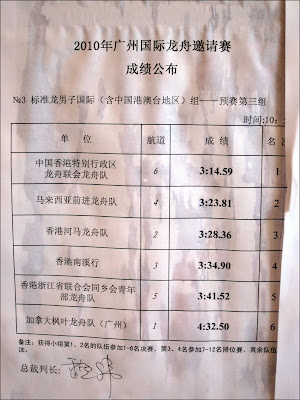 2010年广州国际龙舟邀请赛
成绩公布
№3 标准龙男子国际（含中国港澳台地区）组——预赛第三组
时间:10:
单 位 航道 成 绩 名
中国香港特别行政区
龙舟联会龙舟队 6 3:14.59 1
马来西亚前进龙舟队 4 3:23.81 2
香港河马龙舟队 2 3:28.36 3
香港南溪行 3 3:34.90 4
香港浙江省联合会同乡会青年
部龙舟队 5 3:41.52 5
加拿大枫叶龙舟队（广州） 1 4:32.50 6
备注：获得小组第1、2名的队伍参加1-6名决赛，第3、4名参加7-12名排位赛，其余队伍
总裁判长：